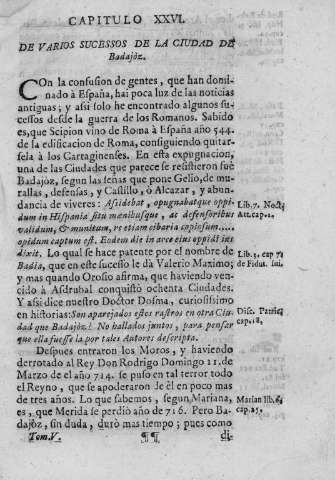 CAPITULO XXVI.
DE VARIOS SUCESSOS DE LA CIUDAD DE
Badajòz.
COn la confusion de gentes, que han domi-
nado à España, hai poca luz de las noticias
antiguas; y asi solo he encontrado algunos su-
cessos desde la guerra de los Romanos. Sabido
es, que Scipion vino de Roma à España año 544.
de la edificacion de Roma, consiguiendo quitar-
sela à los Cartaginenses. En esta expugnacion,
una de las Ciudades que parece se resistieron fuè
Badajòz, segun las señas que pone Gelio, de mu-
rallas, defensas, y Castillo, ò Alcazar, y abun-
dancia de viveres: Assidebat, opugnabatque oppi-
dum in Hispania situ mœnibusque, ac defensoribus
validum, & munitum, re etiam cibaria copiosum.....
oppidum captum est. Eodem die in arce ejus oppidi jus
dixit. Lo qual se hace patente por el nombre de
Badia, que en este sucesso le dà Valerio Maximo;
y mas quando Orosio afirma, que haviendo ven-
cido à Asdrubal conquistò ochenta Ciudades.
Y asi dice nuestro Doctor Dosma, curiosissimo
en historias: Son aparejados estos rastros en otra Ciu-
dad que Badajòz? No hallados juntos, para pensar
que ella fuesse la por tales Autores descripta.
Despues entraron los Moros, y haviendo
derrotado al Rey Don Rodrigo Domingo 11. de
Marzo de el año 714. se puso en tal terror todo
el Reyno, que se apoderaron de èl en poco mas
de tres años. Lo que sabemos, segun Mariana,
es, que Merida se perdiò año de 716. Pero Ba-
dajòz, sin duda, durò mas tiempo; pues como
Tom.V. ¶¶ di-
Lib.7. Noct.
Att.cap.1.
Lib.3. cap 7.
de Fidut. sui.
Disc. Patric.
cap.18.
Marian lib.6.
cap.25.